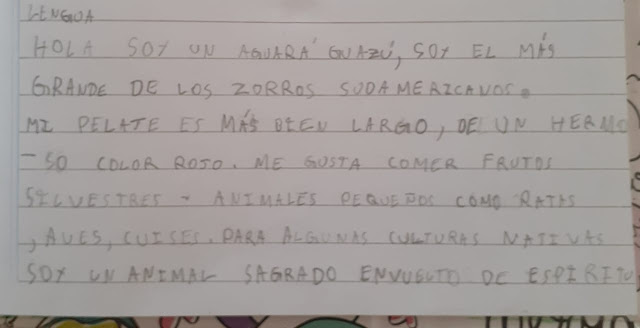 LENGUA
HOLA SOY UN AGUARÁ GUAZÚ, SOY EL MÁS
GRANDE DE LOS ZORROS SUDAMERICANOS.
MI PELATE ES MÁS BIEN LARGO, DE UN HERMO
-SO COLOR ROJO. ME GUSTA COMER FRUTOS
SILVESTRES - ANIMALES PEQUEÑOS COMO RATAS
, AVES, CUISES. PARA ALGUNAS CULTURAS NATIVAS
SOY UN ANIMAL SAGRADO ENVUELTO DE ESPIRITU